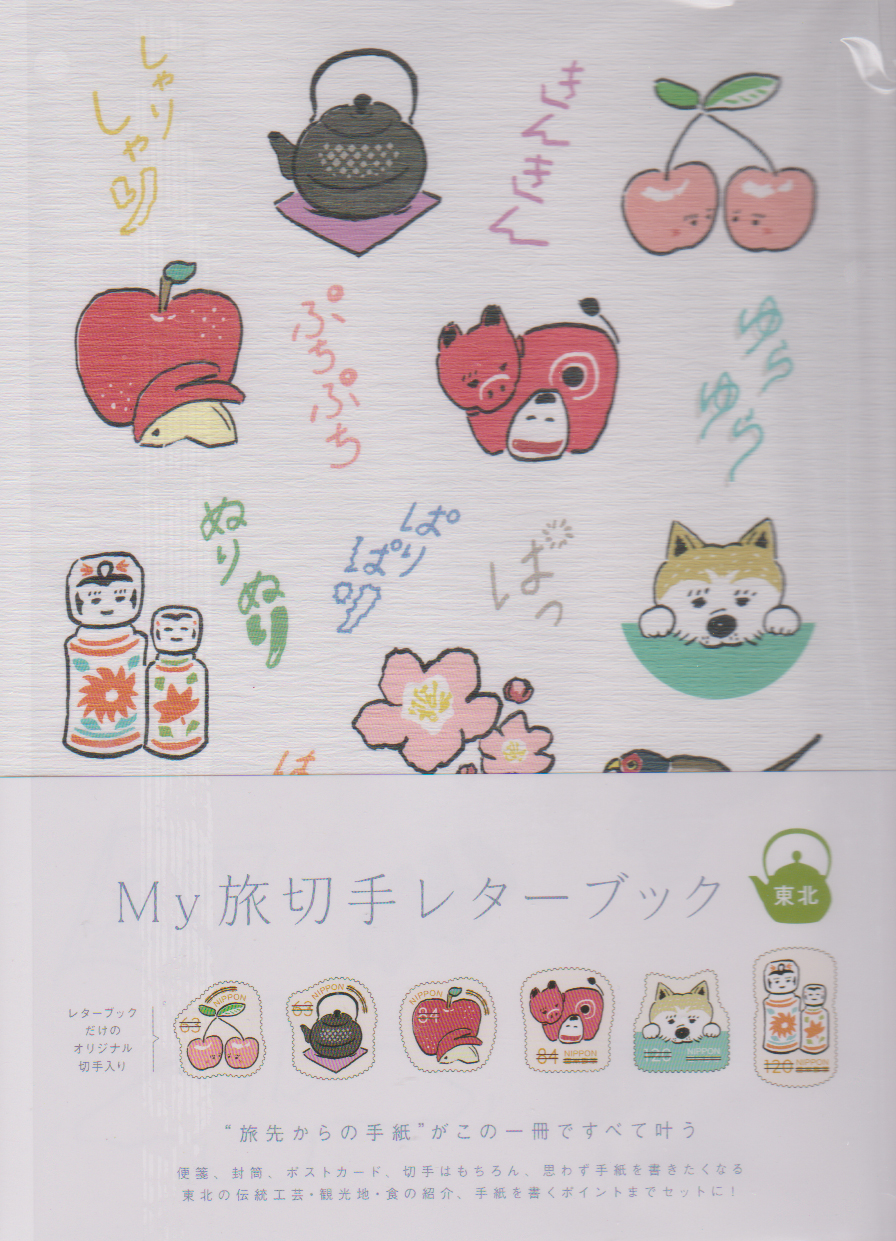 しゃり
しゃり
きんきん
ぷちぷち
ゆら
ゆら
ぬり
ぬり
ぱり
ぱり
ぱっ
は
My旅切手レターブック
東北
レターブック
だけの
オリジナル
切手入り
63 NIPPON
63 NIPPON
84 NIPPON
84 NIPPON
120 NIPPON
120 NIPPON
“旅先からの手紙”がこの一冊ですべて叶う
便箋、封筒、ポストカード、切手はもちろん、思わず手紙を書きたくなる
東北の伝統工芸・観光地・食の紹介、手紙を書くポイントまでセットに！